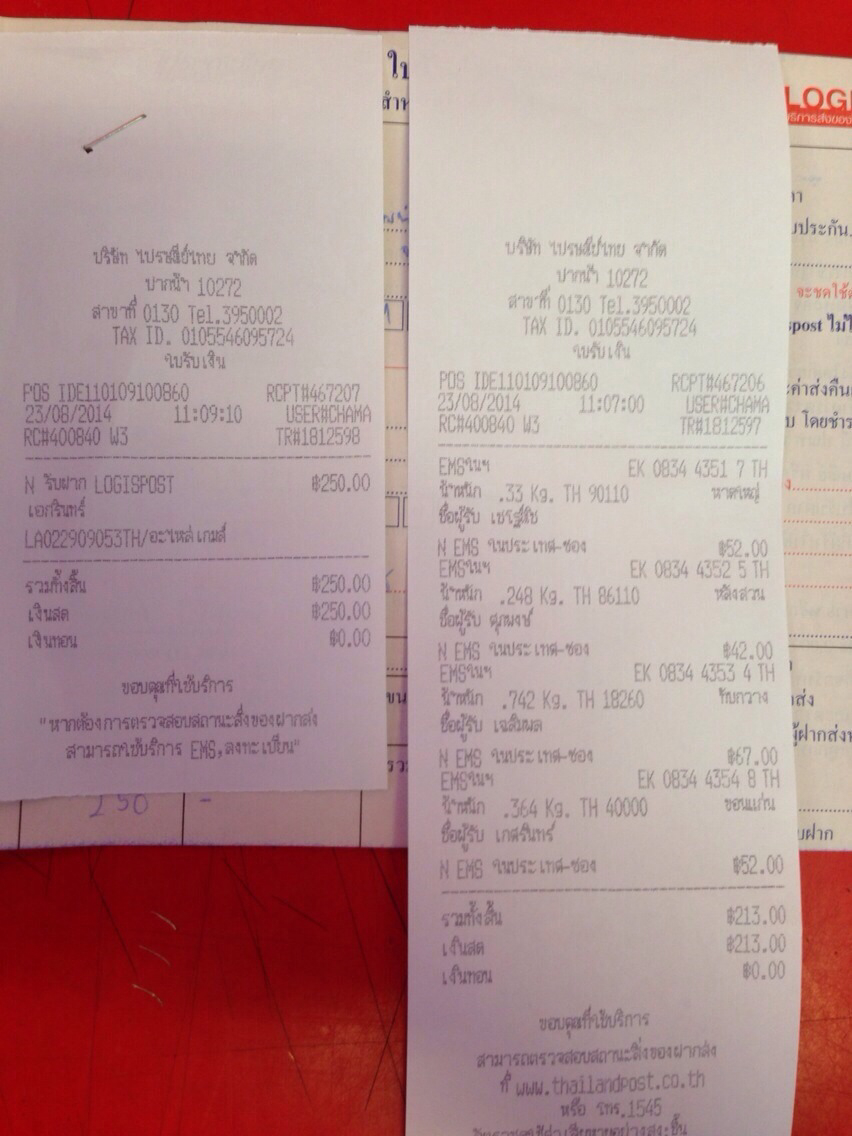 บริษัท ไปรษณีย์ไทย จำกัด
ปากน้ำ 10272
สาขาที่ 0130 Tel.3950002
TAX ID. 0105546095724
ใบรับเงิน
POS IDE110109100860 RCPT#467207
23/08/2014 11:09:10 USER#CHAMA
RC#400840 W3 TR#1812598
N รับฝาก LOGISPOST ฿250.00
เอกรินทร์
LA022909053TH/อะไหล่ เกมส์
รวมทั้งสิ้น ฿250.00
เงินสด ฿250.00
เงินทอน ฿0.00
ขอบคุณที่ใช้บริการ
"หากต้องการตรวจสอบสถานะสิ่งของฝากส่ง
สามารถใช้บริการ EMS,ลงทะเบียน"
250 -
บริษัท ไปรษณีย์ไทย จำกัด
ปากน้ำ 10272
สาขาที่ 0130 Tel.3950002
TAX ID. 0105546095724
ใบรับเงิน
POS IDE110109100860 RCPT#467206
23/08/2014 11:07:00 USER#CHAMA
RC#400840 W3 TR#1812597
EMSในฯ EK 0834 4351 7 TH
น้ำหนัก .33 Kg. TH 90110 หาดใหญ่
ชื่อผู้รับ เชรษฐ์ธัช
N EMS ในประเทศ-ซอง ฿52.00
EMSในฯ EK 0834 4352 5 TH
น้ำหนัก .248 Kg. TH 86110 หลังสวน
ชื่อผู้รับ ศุภพงษ์
N EMS ในประเทศ-ซอง ฿42.00
EMSในฯ EK 0834 4353 4 TH
น้ำหนัก .742 Kg. TH 18260 ทับกวาง
ชื่อผู้รับ เฉลิมพล
N EMS ในประเทศ-ซอง ฿67.00
EMSในฯ EK 0834 4354 8 TH
น้ำหนัก .364 Kg. TH 40000 ขอนแก่น
ชื่อผู้รับ เกศรินทร์
N EMS ในประเทศ-ซอง ฿52.00
รวมทั้งสิ้น ฿213.00
เงินสด ฿213.00
เงินทอน ฿0.00
ขอบคุณที่ใช้บริการ
สามารถตรวจสอบสถานะสิ่งของฝากส่ง
ที่ www.thailandpost.co.th
หรือ โทร.1545
LOGI
บริการส่งของ
จะชดใช้
post ไม่
ค่าส่งคืน
โดยชำร
ผู้ฝากส่ง